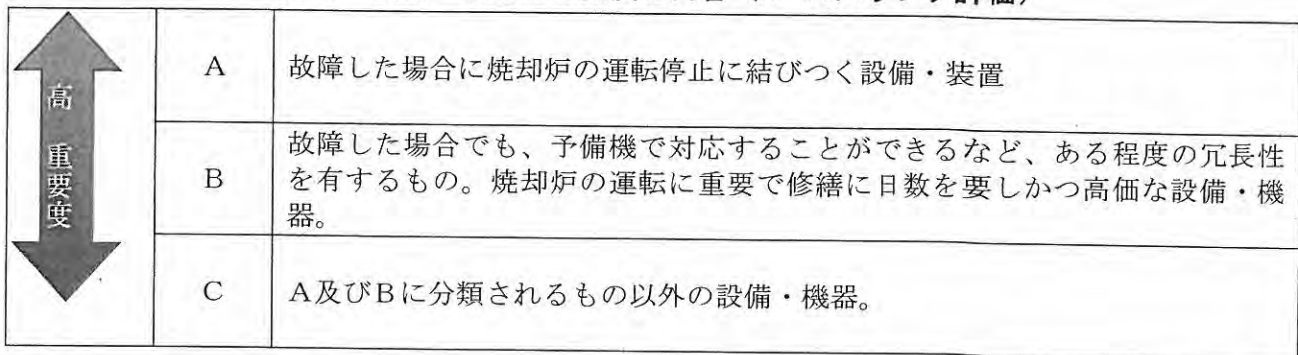 高
重要度
A
故障した場合に焼却炉の運転停止に結びつく設備・装置
B
故障した場合でも、予備機で対応することができるなど、ある程度の冗長性
を有するもの。焼却炉の運転に重要で修繕に日数を要しかつ高価な設備・機
器。
C
A及びBに分類されるもの以外の設備・機器。